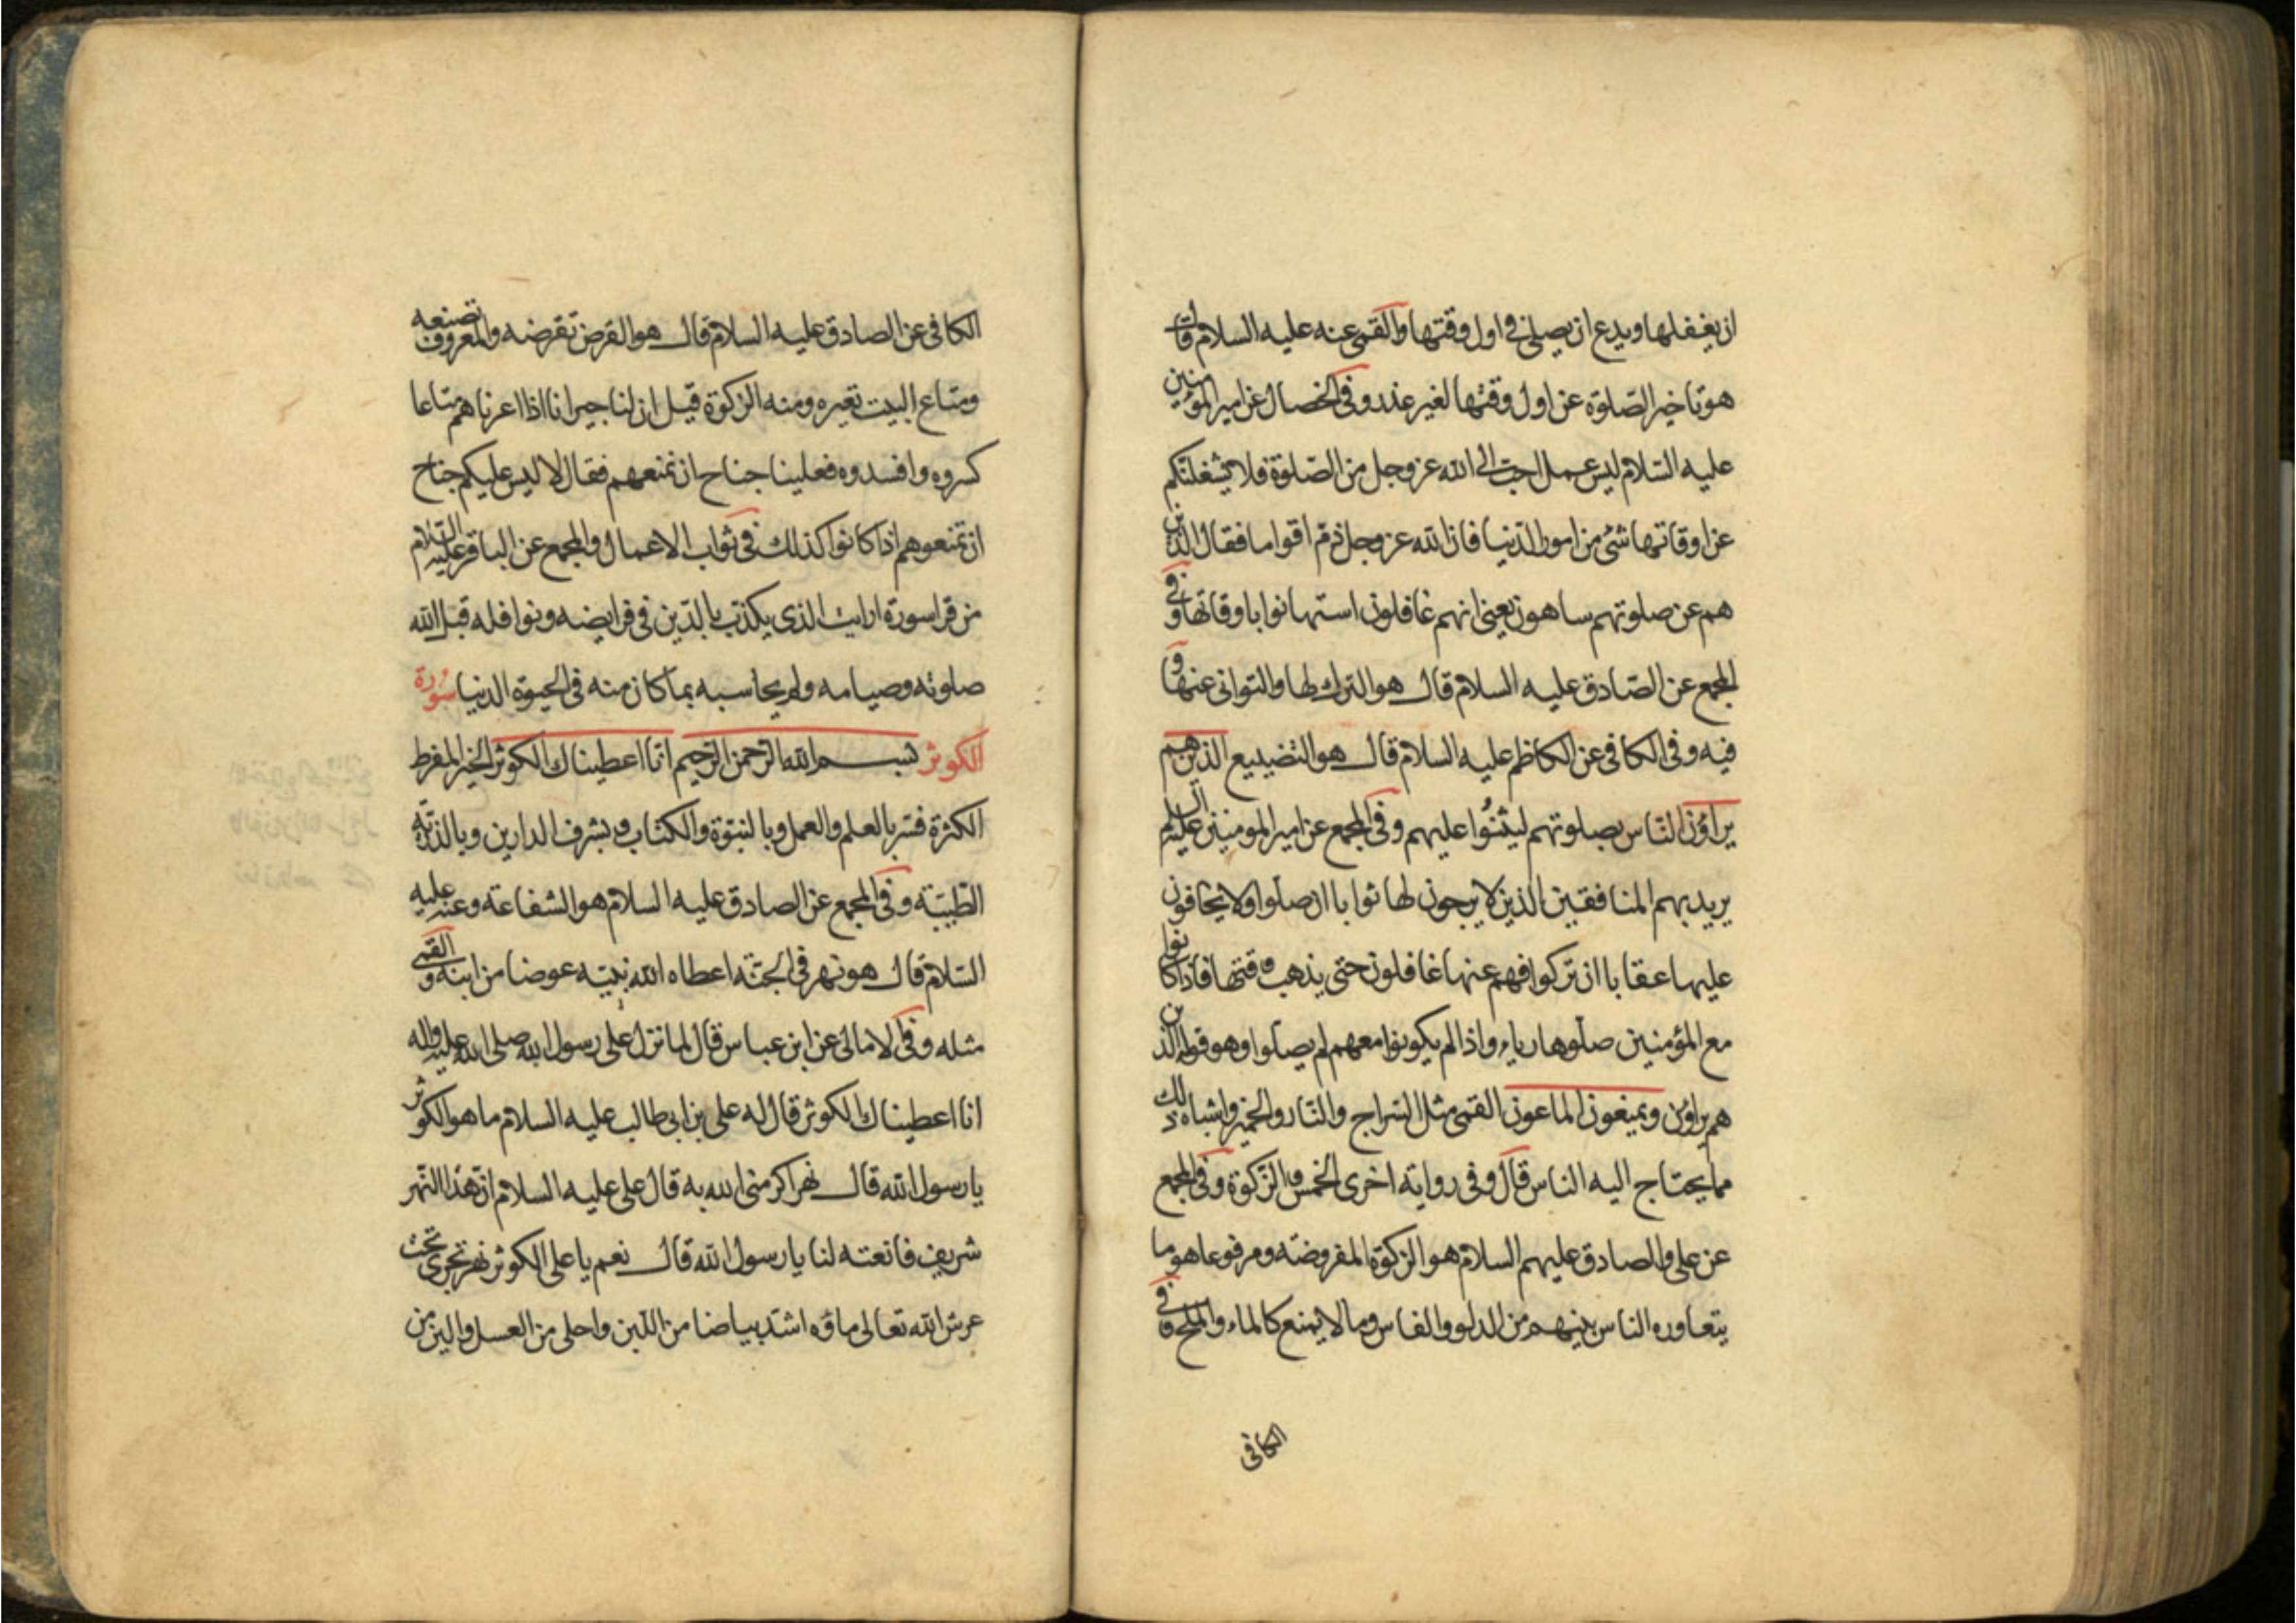 ان يغفلها ويدع ان يصلي في اول وقتها والقمي عنه عليه السلام قال
هو تاخير الصّلوة عن اول وقتها لغير عذر وفي الخصال عن امير المؤمنين
عليه السّلام ليس عمل احبّ الى الله عز وجل من الصّلوة فلا يشغلنكم
عن اوقاتها شئ من امور الدّنيا فان الله عز وجل ذمّ اقواما فقال الذين
هم عن صلوتهم ساهون يعني انهم غافلون استهانوا باوقاتها وفي
المجمع عن الصّادق عليه السلام قال هو الترك لها والتواني عنها و
فيه وفي الكافي عن الكاظم عليه السلام قال هو التضييع الذين هم
يراؤن النّاس بصلوتهم ليثنُوا عليهم وفي المجمع عن امير المومنين عليه السلام
يريد بهم المنافقين الذين لا يرجون لها ثوابا ان صلّوا ولا يخافون
عليها عقابا ان تركوا فهم عنها غافلون حتى يذهب وقتها فاذا كانوا
مع المؤمنين صلّوها رياء واذا لم يكونوا معهم لم يصلّوا وهو قوله الذين
هم يراؤن ويمنعون الماعون القمى مثل السّراج والنّار والخمير واشباه ذلك
مما يحتاج اليه الناس قال وفي رواية اخرى الخمس والزّكوة وفي المجمع
عن علي والصادق عليهم السلام هو الزكوة المفروضة ومرفوعا هو ما
يتعاوره الناس بينهم من الدلو والفاس وما لا يمنع كالماء والملح وفي
الكافي
الكافي عن الصادق عليه السلام قال هو القرض تقرضه والمعروف تصنعه
ومتاع البيت تعيره ومنه الزكوة قيل ان لنا جيرانا اذا اعرناهم متاعا
كسروه وافسدوه فعلينا جناح ان نمنعهم فقال لا ليس عليكم جناح
ان تمنعوهم اذا كانوا كذلك في ثواب الاعمال والمجمع عن الباقر عليه السّلام
من قرا سورة ارايت الذي يكذّب بالدّين في فرايضه ونوافله قبل الله
صلوته وصيامه ولم يحاسبه بما كان منه في الحيوة الدنيا سورة
الكوثر بسم الله الرّحمن الرّحيم انّا اعطيناك الكوثر الخير المفرط
الكثرة فسّر بالعلم والعمل وبالنبوّة والكتاب وبشرف الدارين وبالذريّة
الطّيبّة وفي المجمع عن الصادق عليه السلام هو الشفاعة وعنه عليه
السّلام قال هو نهر في الجنّة اعطاه الله نبيّه عوضا من ابنه والقمّى
مثله وفي الامالى عن ابن عباس قال لما نزل على رسول الله صلى الله عليه واله
انا اعطيناك الكوثر قال له على بن ابي طالب عليه السلام ما هو الكوثر
يا رسول الله قال نهر اكرمني الله به قال على عليه السلام ان هذا النّهر
شريف فانعته لنا يا رسول الله قال نعم يا على الكوثر نهر تجرى تحت
عرش الله تعالى ماؤه اشدّ بياضا من اللّبن واحلى من العسل والين من